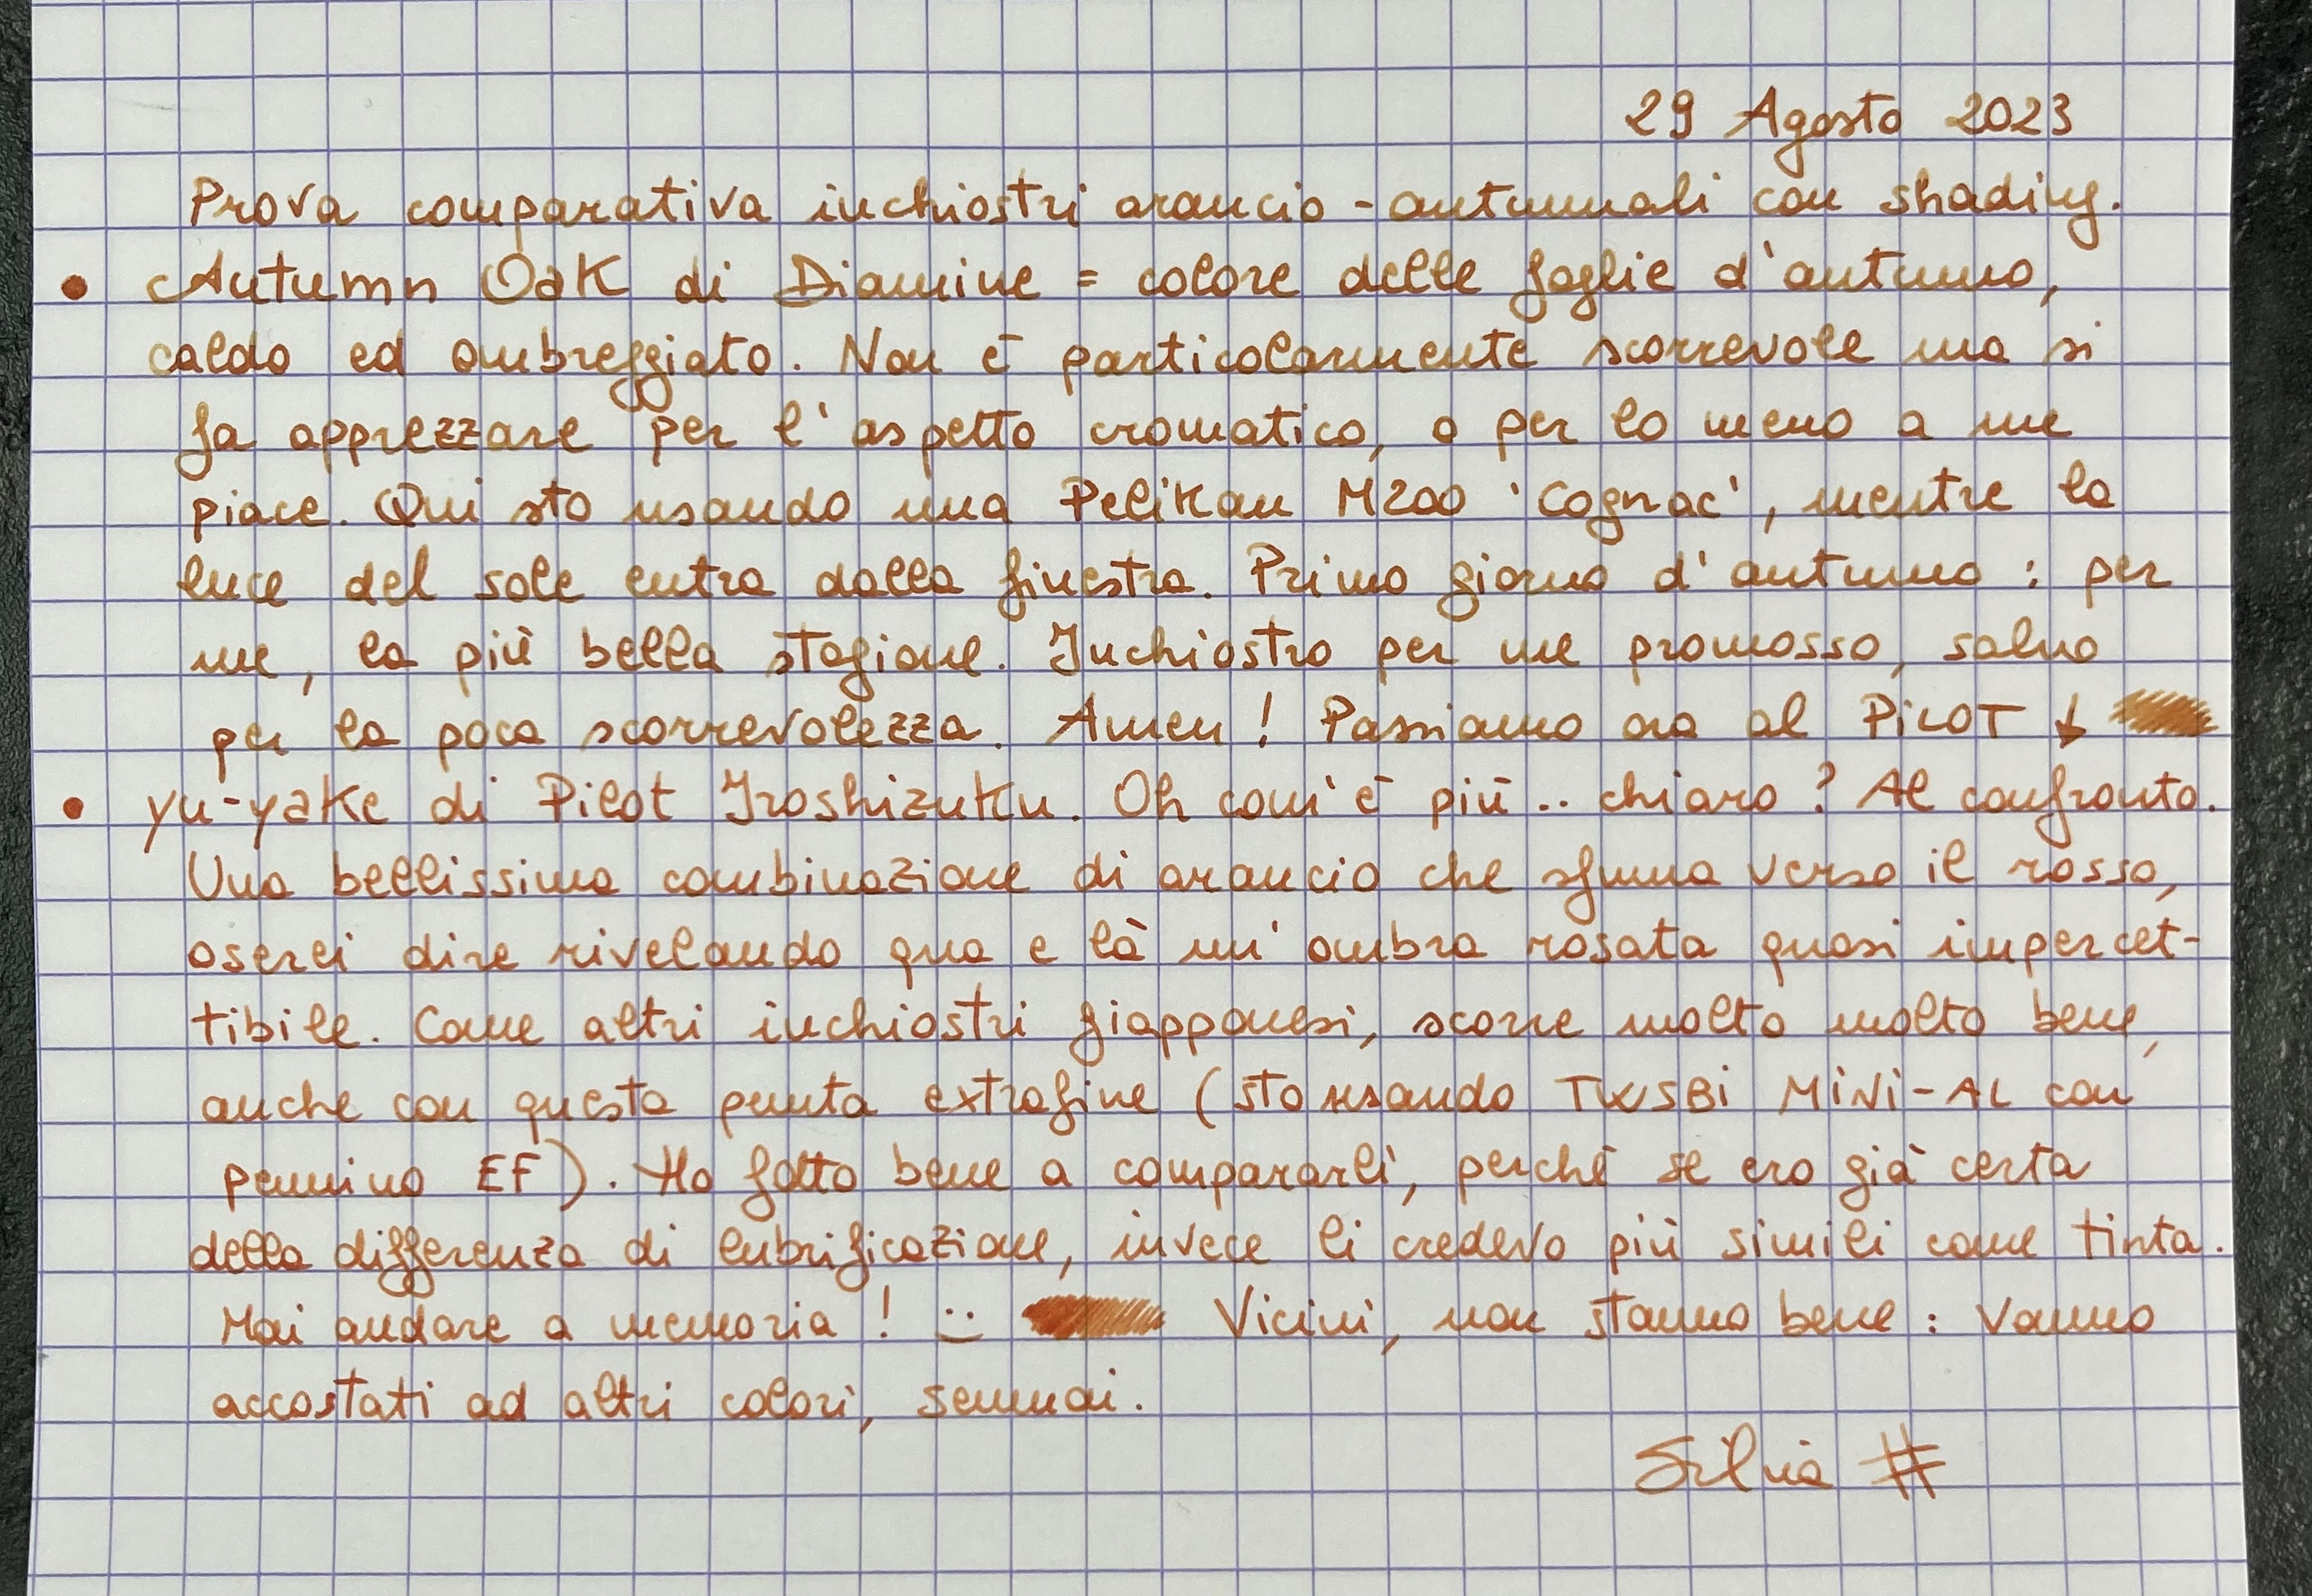 29 Agosto 2023
Prova comparativa inchiostri arancio-autunnali con shading.
• Autumn Oak di Diamine = colore delle foglie d'autunno,
caldo ed ombreggiato. Non è particolarmente scorrevole ma si
fa apprezzare per l'aspetto cromatico, o per lo meno a me
piace. Qui sto usando una Pelikan M200 'Cognac', mentre la
luce del sole entra dalla finestra. Primo giorno d'autunno: per
me, la più bella stagione. Inchiostro per me promosso, salvo
per la poca scorrevolezza. Amen! Passiamo ora al PILOT ↓
• yu-yake di Pilot Iroshizuku. Oh com'è più.. chiaro? Al confronto.
Una bellissima combinazione di arancio che sfuma verso il rosso,
oserei dire rivelando qua e là un'ombra rosata quasi impercet-
tibile. Come altri inchiostri giapponesi, scorre molto molto bene,
anche con questa punta extrafine (sto usando TWSBI MINI-AL con
pennino EF). Ho fatto bene a compararli, perché se ero già certa
della differenza di lubrificazione, invece li credevo più simili come tinta.
Mai andare a memoria! :) Vicini, non stanno bene: vanno
accostati ad altri colori, semmai.
Silvia #